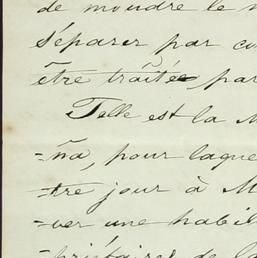 de moudre le m
séparer par co
être traitée, par
Telle est la M
-ña, pour laque
-tre jour à M
-ver une habil
-priétaires de la